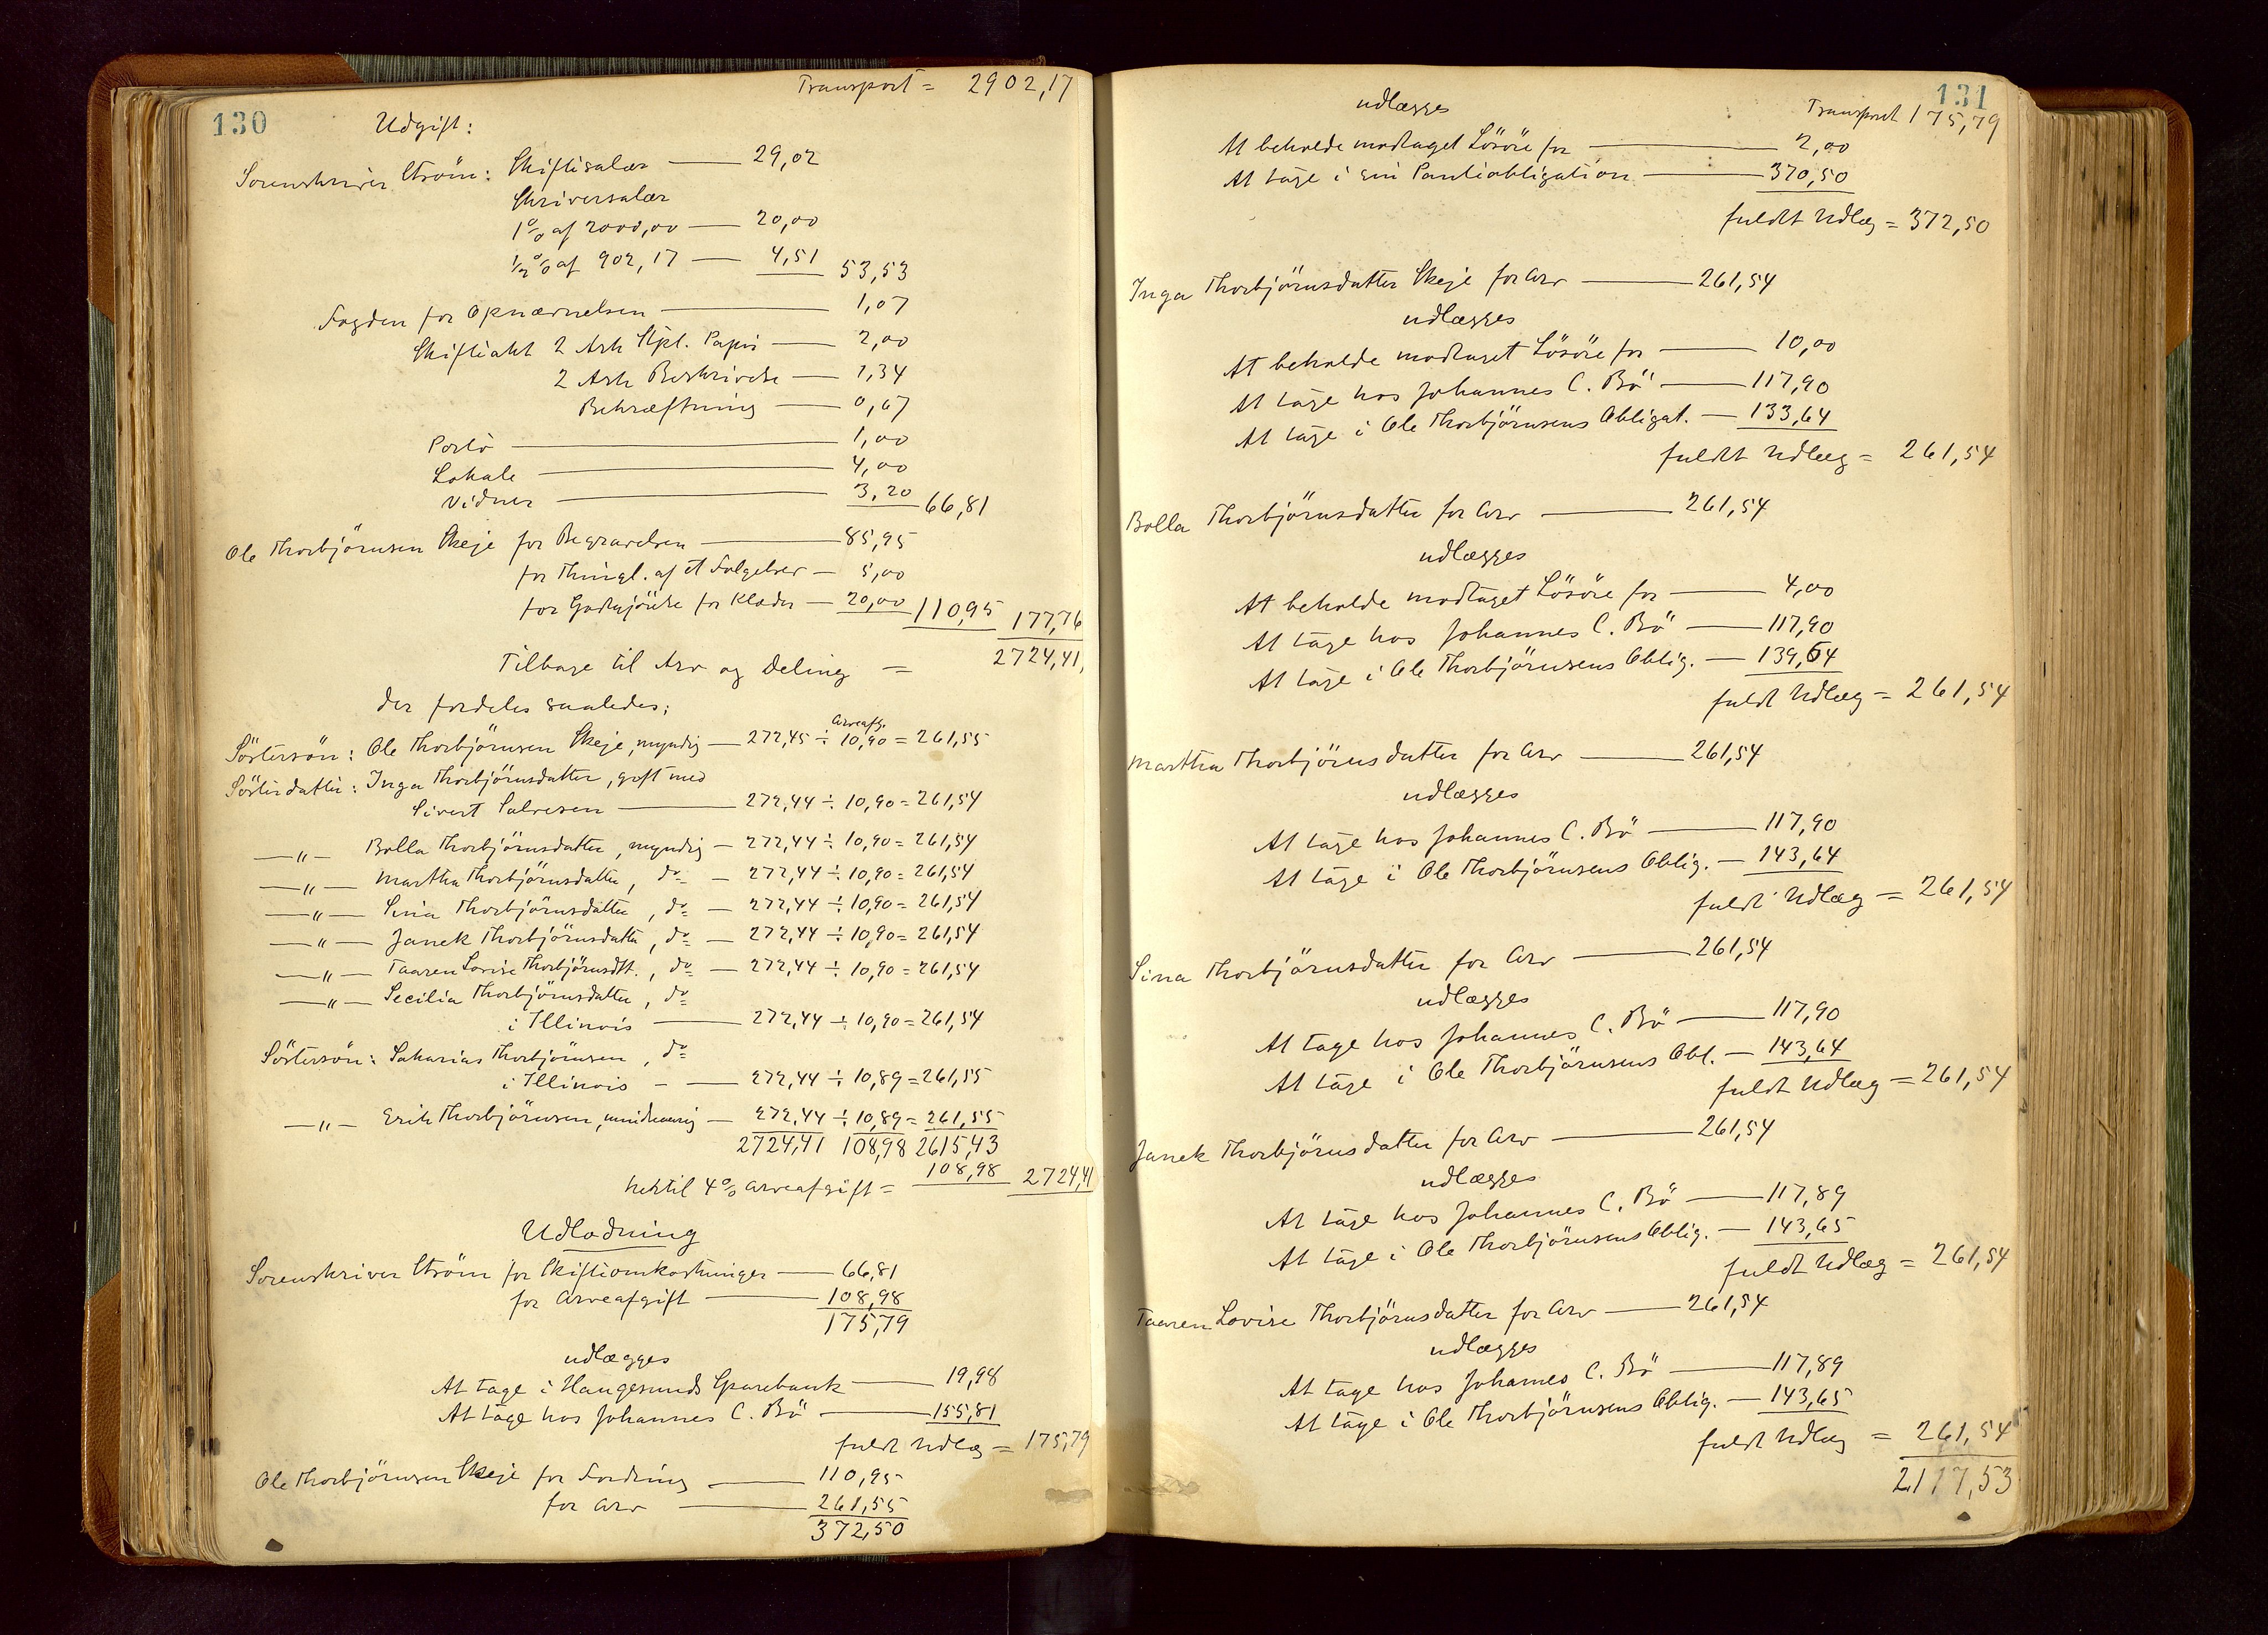 Transport = 2902,17
130 Udgift:
Sorenskriver Ström: Skiftesalær — 29,02
Skriversalær
1% af 2000,00 — 20,00
½% af 902,17 — 4,51 53,53
Fogden for Opnævnelsen — 1,07
Skifteakt 2 Ark Stpl. Papir — 2,00
2 Ark Beskrivelse — 1,34
Bekræftning — 0,67
Porto — 1,00
Lokale — 4,00
Vidner — 3,20 66,81
Ole Thorbjörnsen Skeje for Begravelsen — 85,95
for Thingl. af et Følgebrev — 5,00
for Godtgjörelse for Klæder — 20,00 110,95 177,76
Tilbage til Arv og Deling = 2724,41
der fordeles saaledes;
Arveafg.
Söstersön: Ole Thorbjörnsen Skeje, myndig — 272,45 ÷ 10,90 = 261,55
Sösterdatter: Inga Thorbjörnsdatter, gift med
Sivert Salvesen — 272,44 ÷ 10,90 = 261,54
—"— Bolla Thorbjörnsdatter, myndig — 272,44 ÷ 10,90 = 261,54
—"— Martha Thorbjörnsdatter, do — 272,44 ÷ 10,90 = 261,54
—"— Sina Thorbjörnsdatter, do — 272,44 ÷ 10,90 = 261,54
—"— Janek Thorbjörnsdatter, do — 272,44 ÷ 10,90 = 261,54
—"— Taaren Lovise Thorbjörnsdtt., do — 272,44 ÷ 10,90 = 261,54
—"— Secilia Thorbjörnsdatter, do
i Illinois — 272,44 ÷ 10,90 = 261,54
Söstersön: Sakarias Thorbjörnsen, do
i Illinois — 272,44 ÷ 10,89 = 261,55
—"— Erik Thorbjörnsen, mindreaarig — 272,44 ÷ 10,89 = 261,55
2724,41 108,98 2615,43
hertil 4% Arveafgift = 108,98 2724,41
Udlodning
Sorenskriver Ström for Skifteomkostninger — 66,81
for Arveafgift — 108,98
175,79
udlægges
At tage i Haugesunds Sparebank — 19,98
At tage hos Johannes C. Bö — 155,81
fuldt Udlæg = 175,79
Ole Thorbjörnsen Skeje for Fordring — 110,95
for Arv — 261,55
372,50
131
udlægges Transport 175,79
At beholde modtaget Lösöre for — 2,00
At tage i sin Panteobligation — 370,50
fuldt Udlæg = 372,50
Inga Thorbjörnsdatter Skeje for Arv — 261,54
udlægges
At beholde modtaget Lösöre for — 10,00
At tage hos Johannes C. Bö — 117,90
At tage i Ole Thorbjörnsens Obligat. — 133,64
fuldt Udlæg = 261,54
Bolla Thorbjörnsdatter for Arv — 261,54
udlægges
At beholde modtaget Lösöre for — 4,00
At tage hos Johannes C. Bö — 117,90
At tage i Ole Thorbjörnsens Oblig. — 139,64
fuldt Udlæg = 261,54
Martha Thorbjörnsdatter for Arv — 261,54
udlægges
At tage hos Johannes C. Bö — 117,90
At tage i Ole Thorbjörnsens Oblig. — 143,64
fuldt Udlæg = 261,54
Sina Thorbjörnsdatter for Arv — 261,54
udlægges
At tage hos Johannes C. Bö — 117,90
At tage i Ole Thorbjörnsens Obl. — 143,64
fuldt Udlæg = 261,54
Janek Thorbjörnsdatter for Arv — 261,54
udlægges
At tage hos Johannes C. Bö — 117,89
At tage i Ole Thorbjörnsens Oblig. — 143,65
fuldt Udlæg = 261,54
Taaren Lovise Thorbjörnsdatter for Arv — 261,54
udlægges
At tage hos Johannes C. Bö — 117,89
At tage i Ole Thorbjörnsens Oblig. — 143,65
fuldt Udlæg = 261,54
2117,53